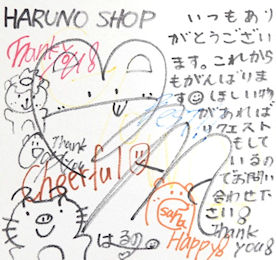 HARUNO SHOP
Thank you
いつもあり
がとうござい
ます。これから
もがんばりま
す ほしい物
があれば
リクエスト
もして
いるの
でお問い
合わせ下
さい
Thank
you
Thank
you
Cheerful
safa
Happy
はるの